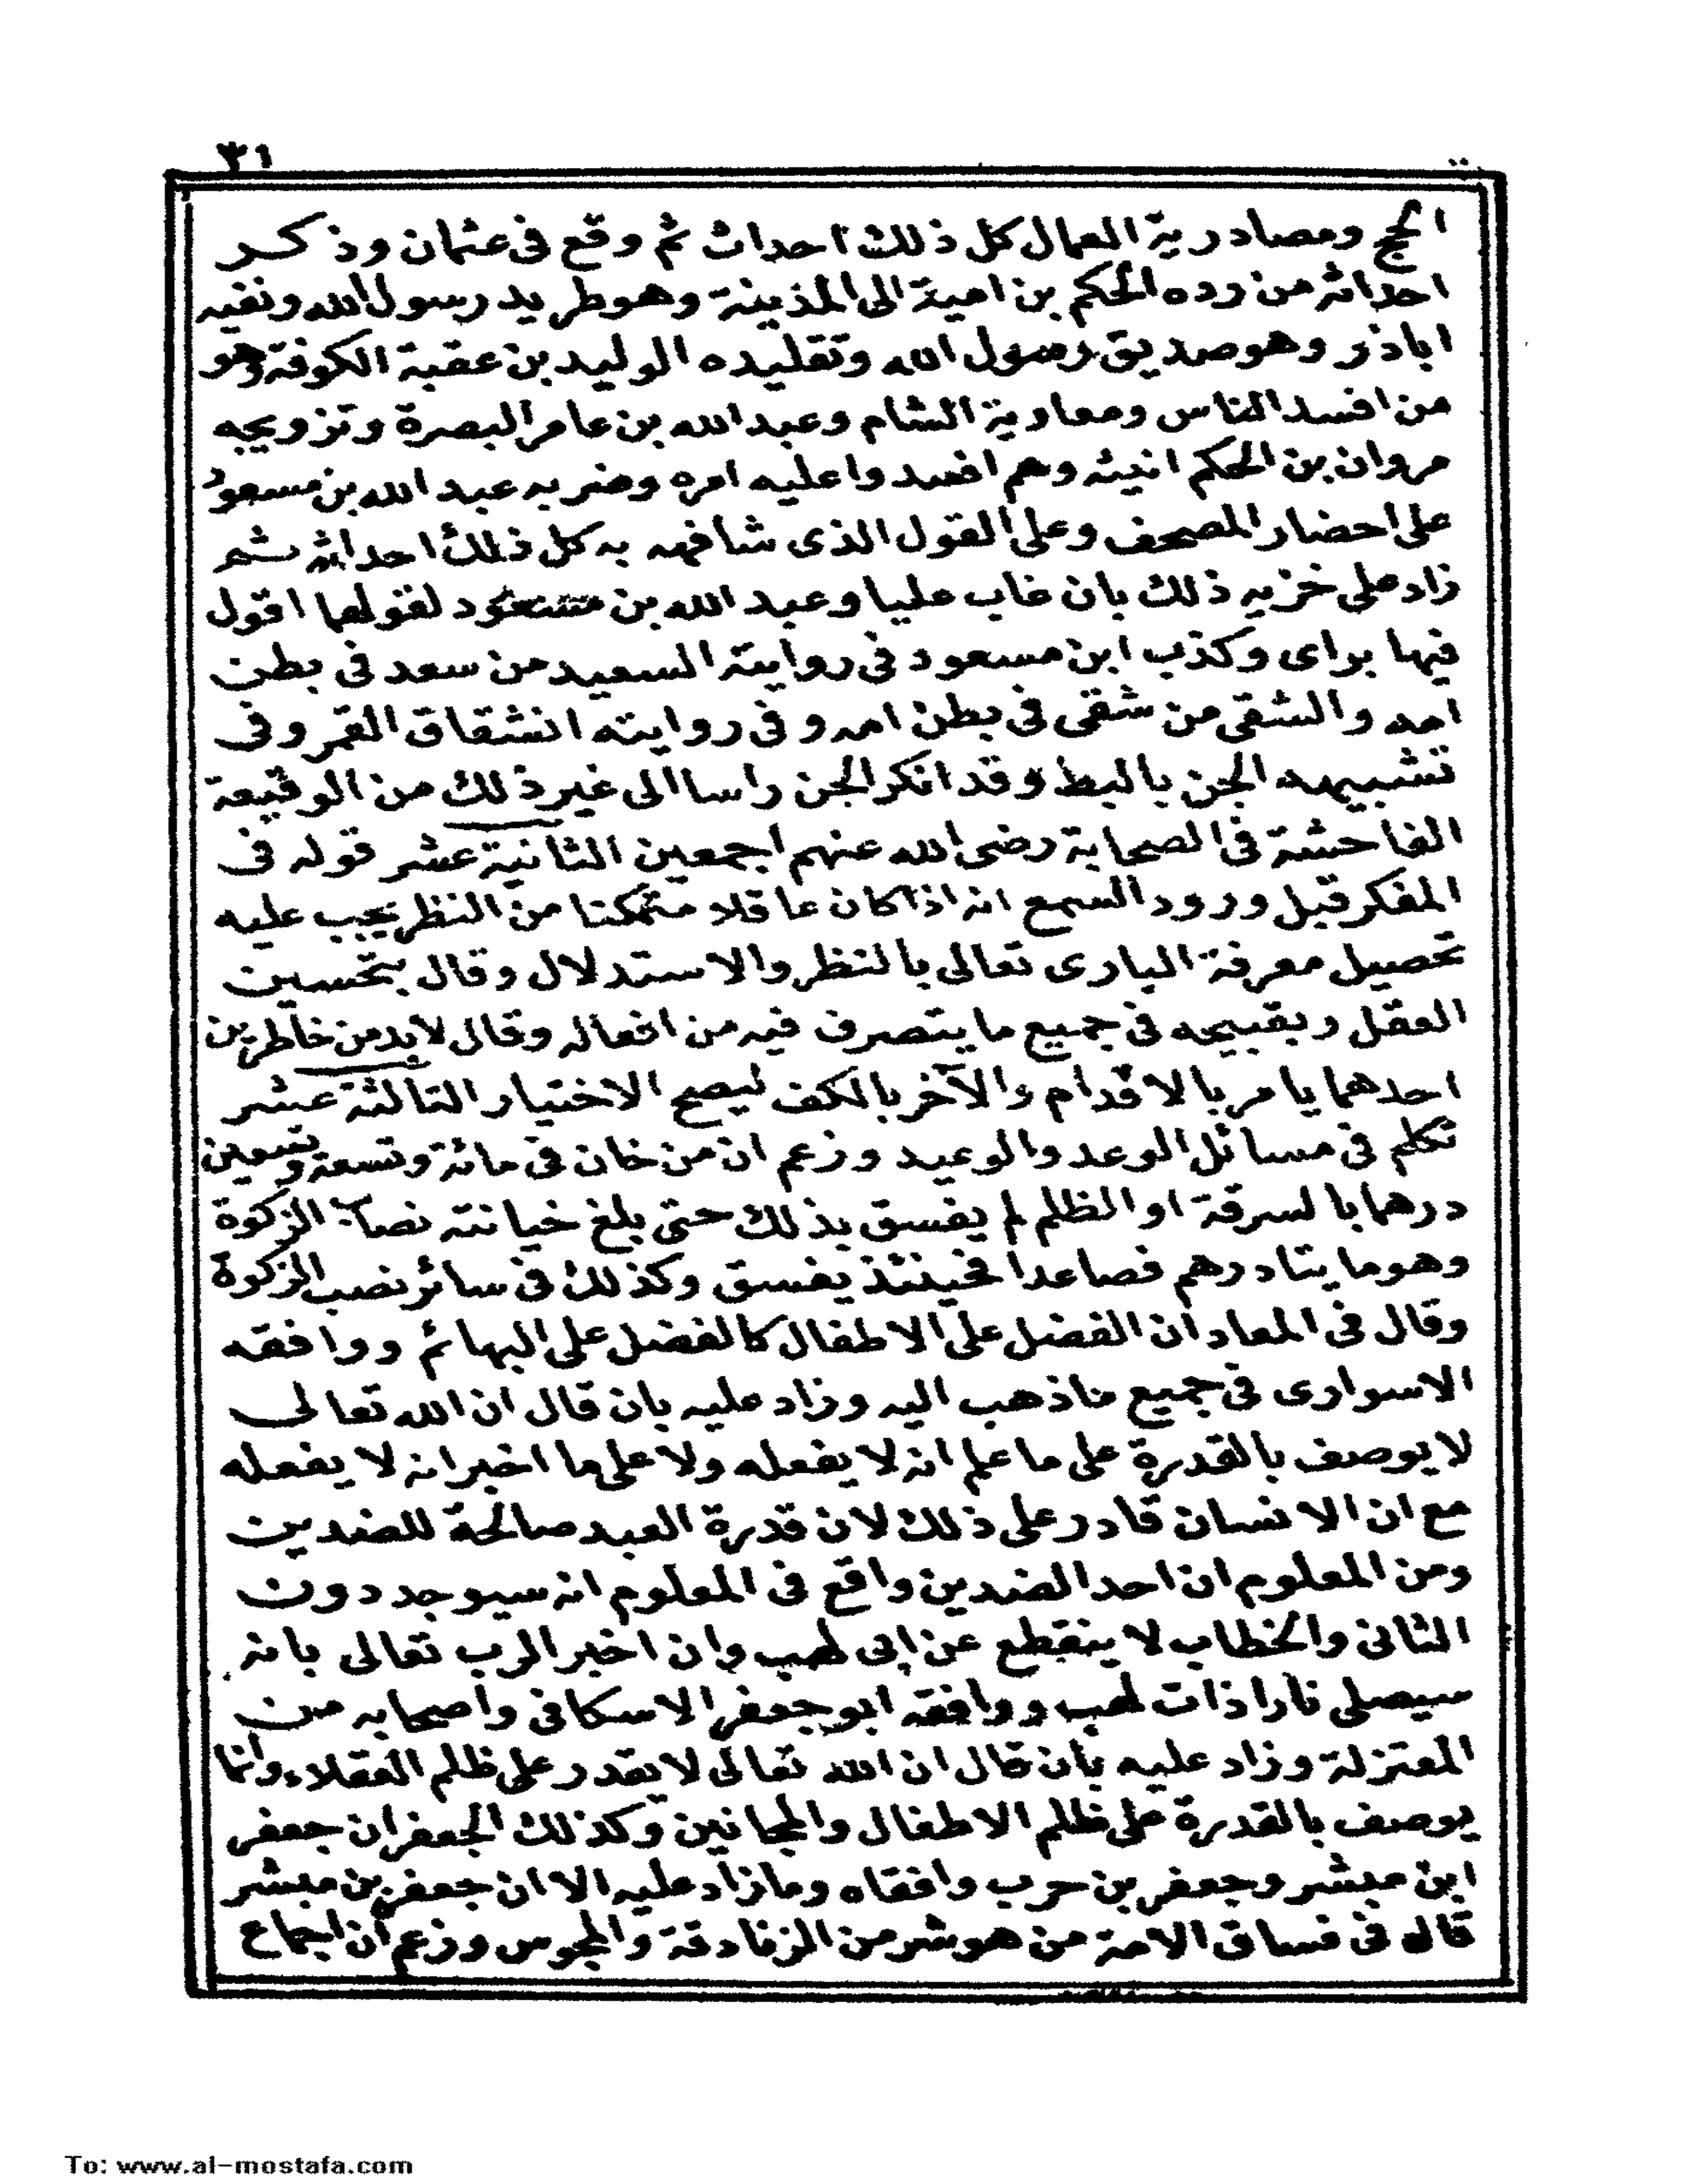 ٣١
الحج ومصادرية العمال كل ذلك احداث ثم وقع فى عثمان وذكر
احداثه من رده الحكم بن امية الى المدينة وهو طريد رسول الله ونفيه
اباذر وهو صديق رسول الله وتقليده الوليد بن عقبة الكوفة وهو
من افسد الناس ومعاوية الشام وعبد الله بن عامر البصرة وتزويجه
مروان بن الحكم ابنته وهم افسدوا عليه امره وضربه عبد الله بن مسعود
على احضار المصحف وعلى القول الذى شافهه به كل ذلك احداثه ثم
زاد على خزيه ذلك بان عاب عليا وعبد الله بن مسعود لقولهما اقول
فيها براى وكذب ابن مسعود فى روايته السعيد من سعد فى بطن
امه والشقى من شقى فى بطن امه وفى روايته انشقاق القمر وفى
تشبيهه الجن بالبط وقد انكر الجن راسا الى غير ذلك من الوقيعة
الفاحشة فى الصحابة رضى الله عنهم اجمعين الثانية عشر قوله فى
المفكر قبل ورود السمع انه اذا كان عاقلا متمكنا من النظر يجب عليه
تحصيل معرفة البارى تعالى بالنظر والاستدلال وقال بتحسين
العقل وبقبيحه فى جميع ما يتصرف فيه من افعاله وقال لا بد من خاطرين
احدهما يامر بالاقدام والآخر بالكف ليصح الاختيار الثالثة عشر
تكلم فى مسائل الوعد والوعيد وزعم ان من خان فى مائة وتسعة وتسعين
درهما بالسرقة او الظلم لم يفسق بذلك حتى بلغ خيانته نصاب الزكوة
وهو مايتا درهم فصاعدا فحينئذ يفسق وكذلك فى سائر نصب الزكوة
وقال فى المعاد ان الفضل على الاطفال كالفضل على البهائم ووافقه
الاسوارى فى جميع ماذهب اليه وزاد عليه بان قال ان الله تعالى
لا يوصف بالقدرة على ما علم انه لا يفعله ولا على ما اخبر انه لا يفعله
مع ان الانسان قادر على ذلك لان قدرة العبد صالحة للضدين
ومن المعلوم ان احد الضدين واقع فى المعلوم انه سيوجد دون
الثانى والخطاب لا ينقطع عن ابى لهب وان اخبر الرب تعالى بانه
سيصلى نارا ذات لهب ووافقه ابو جعفر الاسكافى واصحابه من
المعتزلة وزاد عليه بان قال ان الله تعالى لا يقدر على ظلم العقلاء وانما
يوصف بالقدرة على ظلم الاطفال والمجانين وكذلك الجعفران جعفر
ابن مبشر وجعفر بن حرب وافقاه ومازاد عليه الا ان جعفر بن مبشر
قال فى فساق الامة من هو شر من الزنادقة والمجوس وزعم ان اجماع
To: www.al-mostafa.com